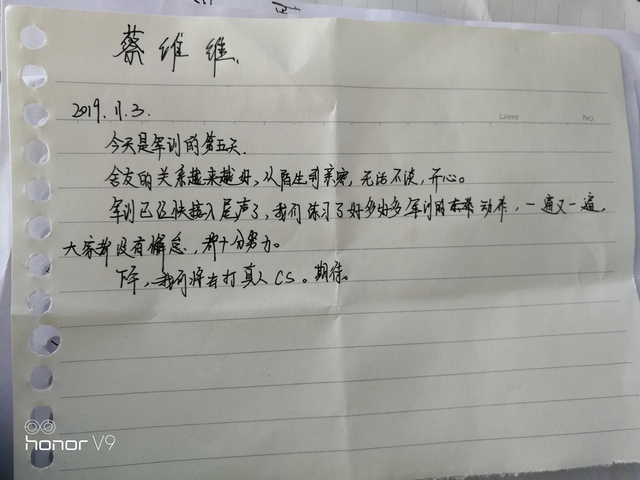 蔡维维.
DATE NO.
2019.11.3.
今天是军训的第五天.
舍友的关系越来越好、从陌生到亲密,无话不谈,开心。
军训已经快接入尾声了,我们练习了好多好多军训的 动作,一遍又一遍,
大家都没有懈怠,都十分努力。
下午,我们将去打真人CS。期待。
honor V9